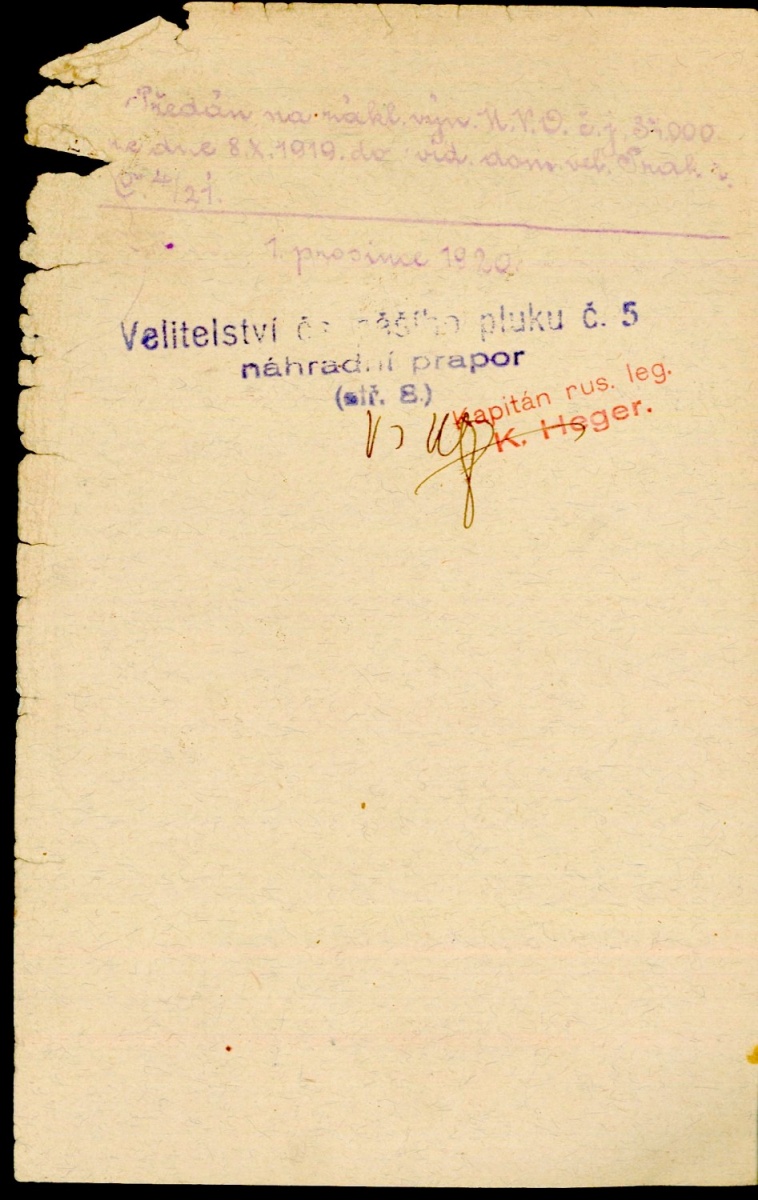 Předán na zákl. výn. M.N.O. č.j. 37.000
ze dne 8.X.1919. do vid. dom. vel. Praha
4/21.
1. prosince 1920
Velitelství pěšího pluku č. 5
náhradní prapor
(stř. 8.)
Kapitán rus. leg.
K. Heger.